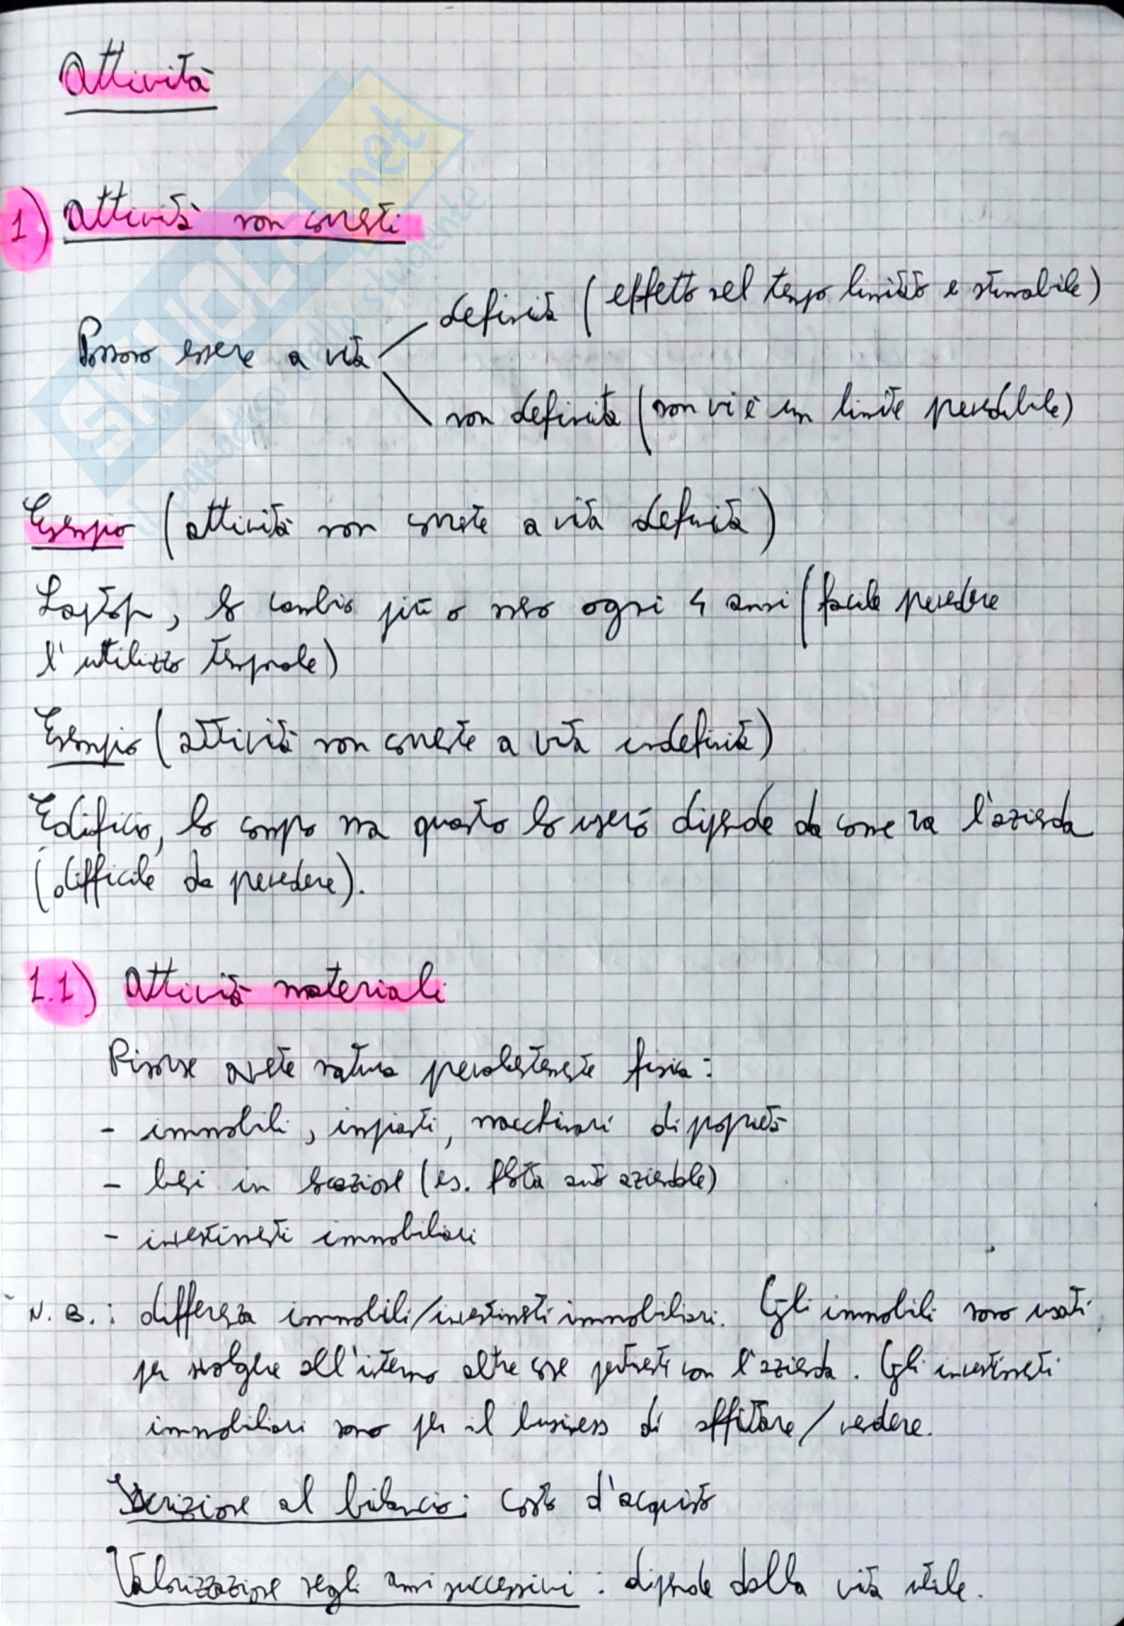 Attività
1) Attività non correnti
Possono essere a vita
definita (effetto nel tempo limitato e stimabile)
non definita (non vi è un limite prevedibile)
Esempio (attività non corrente a vita definita)
Laptop, lo cambio più o meno ogni 4 anni (facile prevedere
l'utilizzo temporale)
Esempio (attività non corrente a vita indefinita)
Edificio, lo compro ma quanto lo userò dipende da come va l'azienda
(difficile da prevedere).
1.1) Attività materiali
Risorse avente natura prevalentemente fisica:
- immobili, impianti, macchinari di proprietà
- beni in locazione (es. flotta auto aziendale)
- investimenti immobiliari
N.B.: differenza immobili/investimenti immobiliari. Gli immobili sono usati
per svolgere all'interno altre cose pertinenti con l'azienda. Gli investimenti
immobiliari sono per il business di affittare/vendere.
Iscrizione al bilancio: costo d'acquisto
Valorizzazione negli anni successivi: dipende dalla vita utile.
SKUOLA.net